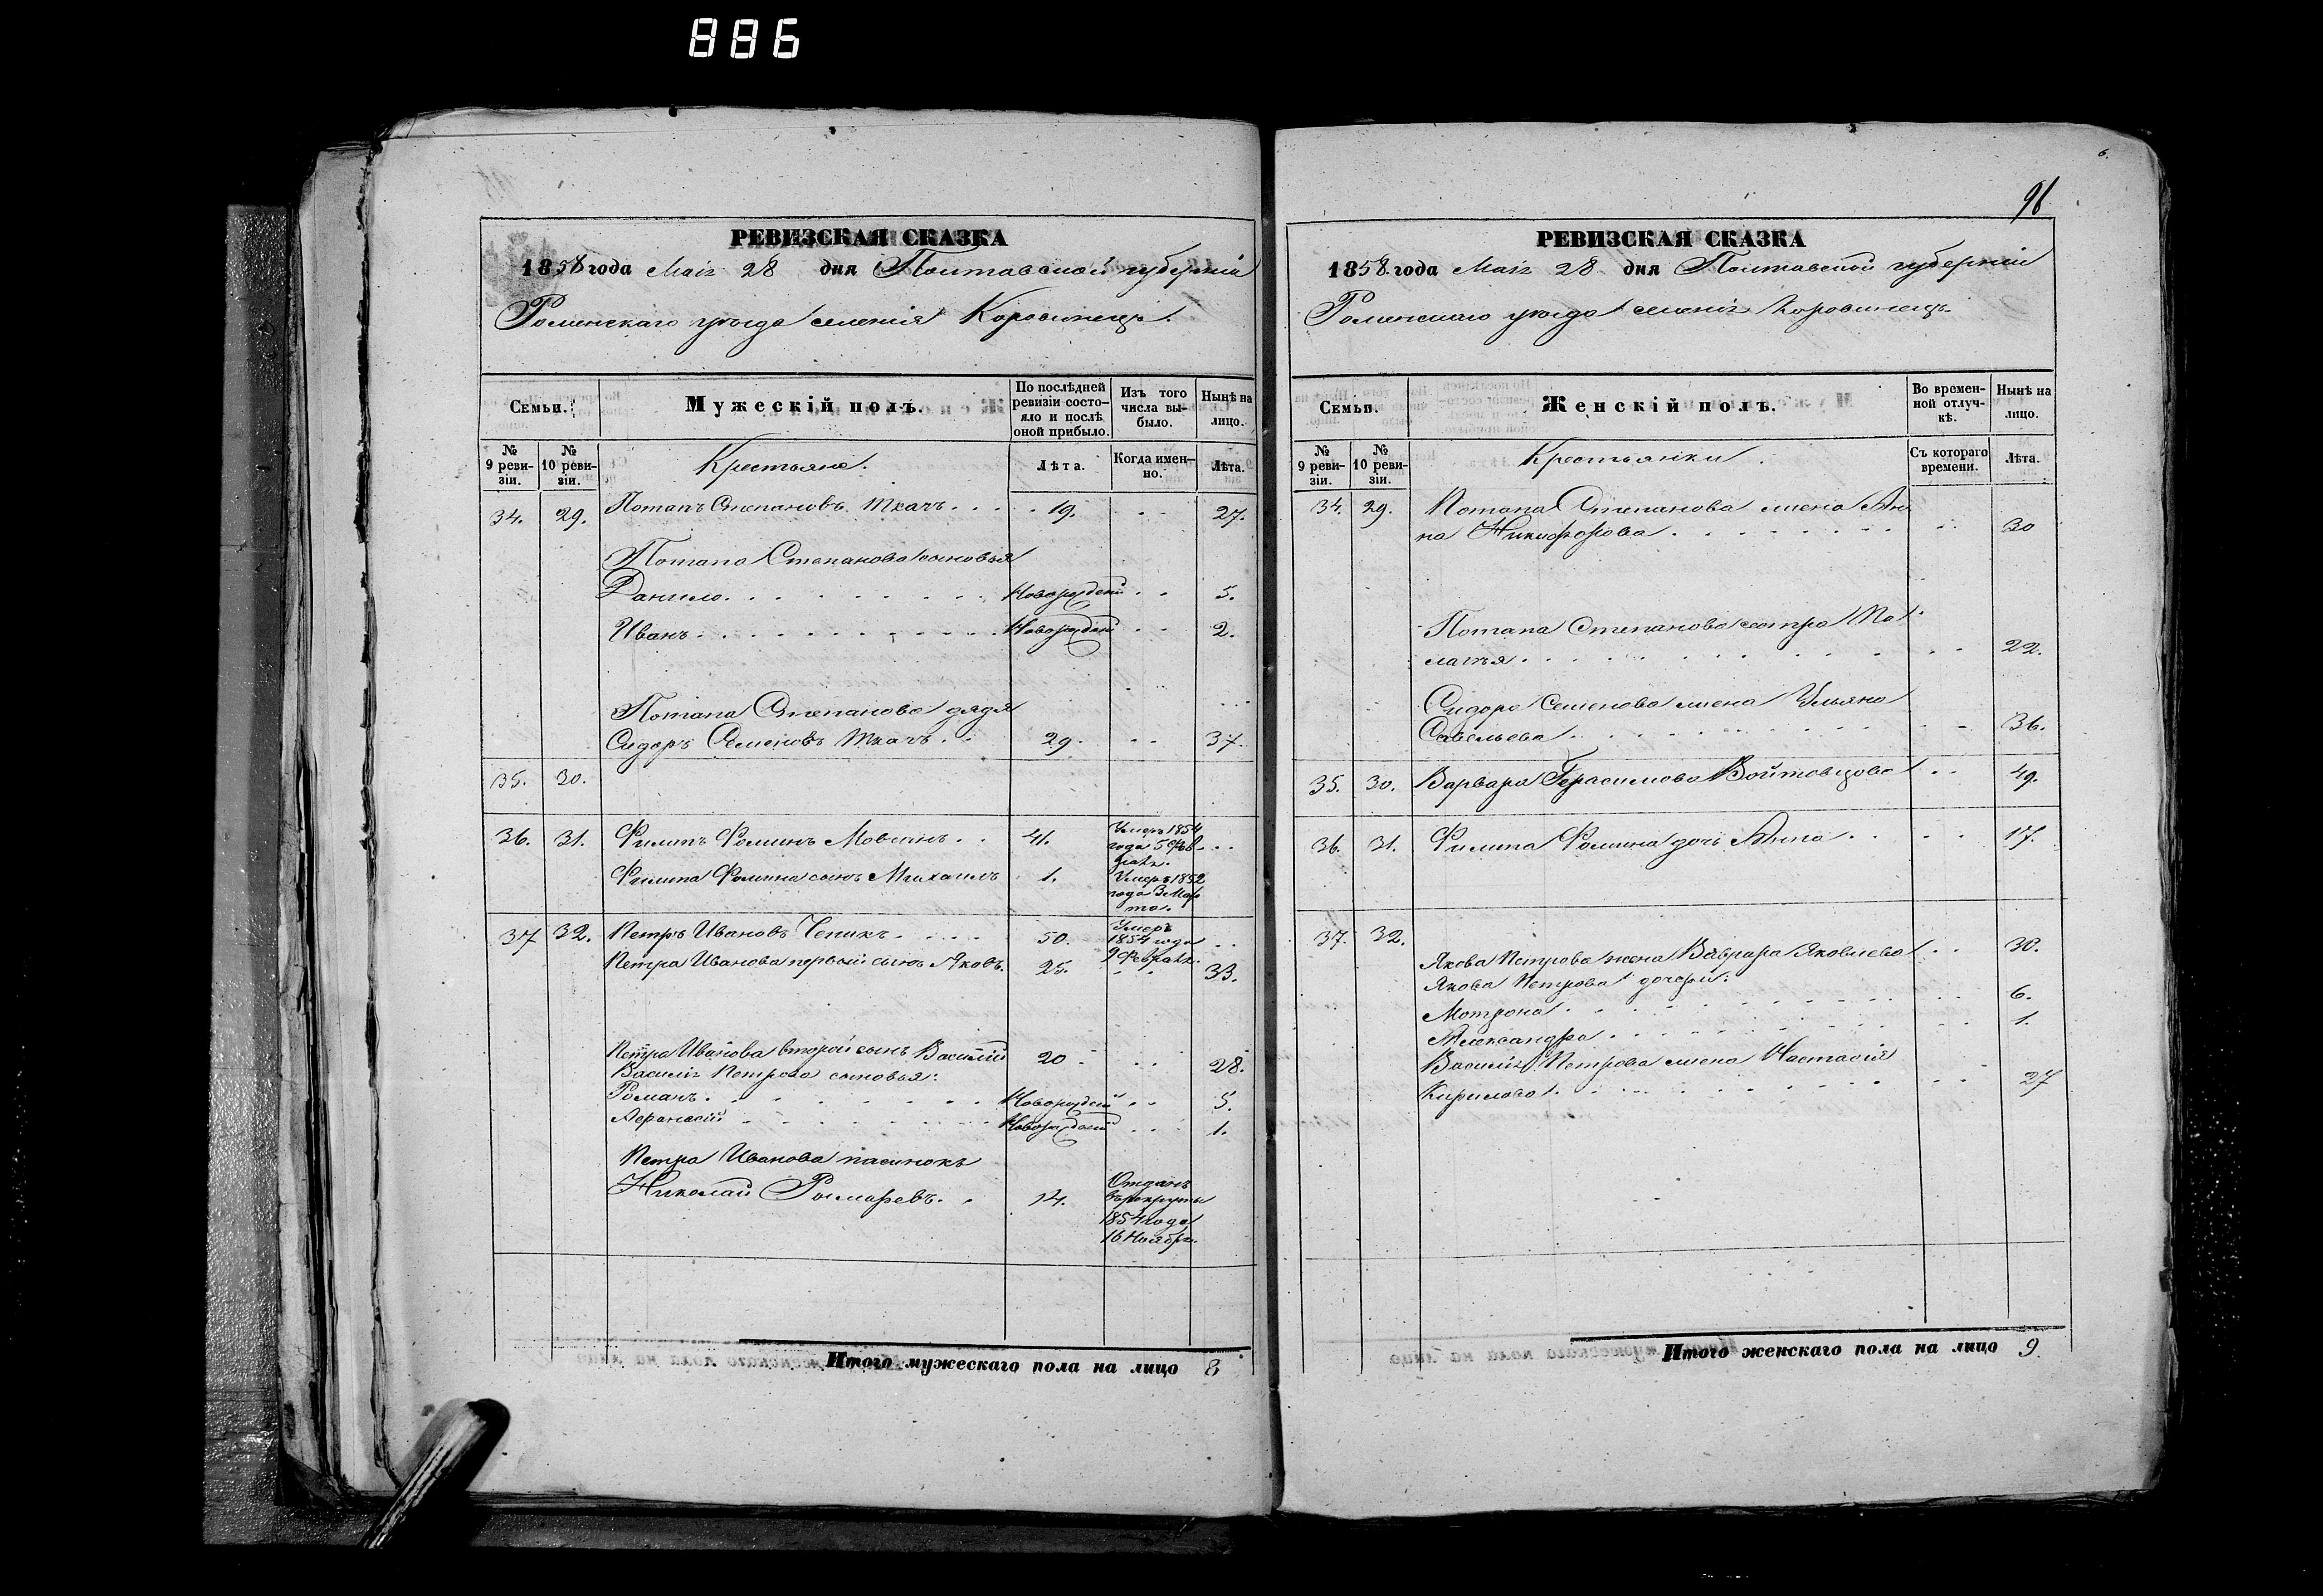 886
РЕВИЗСКАЯ СКАЗКА
1858 года Маія 28 дня Полтавской губерніи
Роменскаго уѣзда селенія Коровинецъ.
Семьи.
Мужескій полъ.
По послѣдней ревизіи состояло и послѣ оной прибыло.
Изъ того числа выбыло.
Нынѣ на лицо.
№ 9 ревизіи.
№ 10 ревизіи.
Крестьяне.
Лѣта.
Когда именно.
Лѣта.
34. 29. Потапъ Степановъ Ткачъ . . . 19. . . 27.
Потапа Степанова сыновья
Данило . . . Новорожденный . . 5.
Иванъ . . . Новорожденный . . 2.
Потапа Степанова дядя
Сидоръ Семеновъ Ткачъ . . 29. . . 37.
35. 30.
36. 31. Филипъ Фоминъ Мовчинъ . . 41. Умеръ 1854
года 5 Фев-
раля.
Филипа Фомина сынъ Михаилъ 1. Умеръ 1852
года 3 Мар
та.
37 32. Петръ Ивановъ Чепикъ . . . 50. Умеръ
1854 года
9 Февраля.
Петра Иванова первый сынъ Яковъ. 25. . . 33.
Петра Иванова второй сынъ Василій 20 . . 28.
Василія Петрова сыновья:
Романъ . . . Новорожденный . . 5.
Афанасій . . . Новорожденный . . 1.
Петра Иванова пасинокъ
Николай . . 14. Отданъ
въ рекруты
1854 года
16 Ноября.
Итого мужескаго пола на лицо 8
6.
96
РЕВИЗСКАЯ СКАЗКА
1858 года Маія 28 дня Полтавской губерніи
Роменскаго уѣзда селенія Коровинецъ.
Семьи.
Женскій полъ.
Во временной отлучкѣ.
Нынѣ на лицо.
№ 9 ревизіи.
№ 10 ревизіи.
Крестьянки.
Съ котораго времени.
Лѣта.
34. 29. Потапа Степанова жена Ан
на Никифорова . . . 30
Потапа Степанова сестра Ма
ланья . . . 22.
Сидора Семенова жена Ульяна
Савельева . . . 36.
35. 30. Варвара Герасимова Войтовцова . . 49.
36. 31. Филипа Фомина дочь Анна . . . 17.
37. 32.
Якова Петрова жена Варвара Яковлева . . 30.
Якова Петрова дочери:
Мотрона . . . 6.
Александра . . . 1.
Василія Петрова жена Настасія
Кирилова . . . 27
Итого женскаго пола на лицо 9.